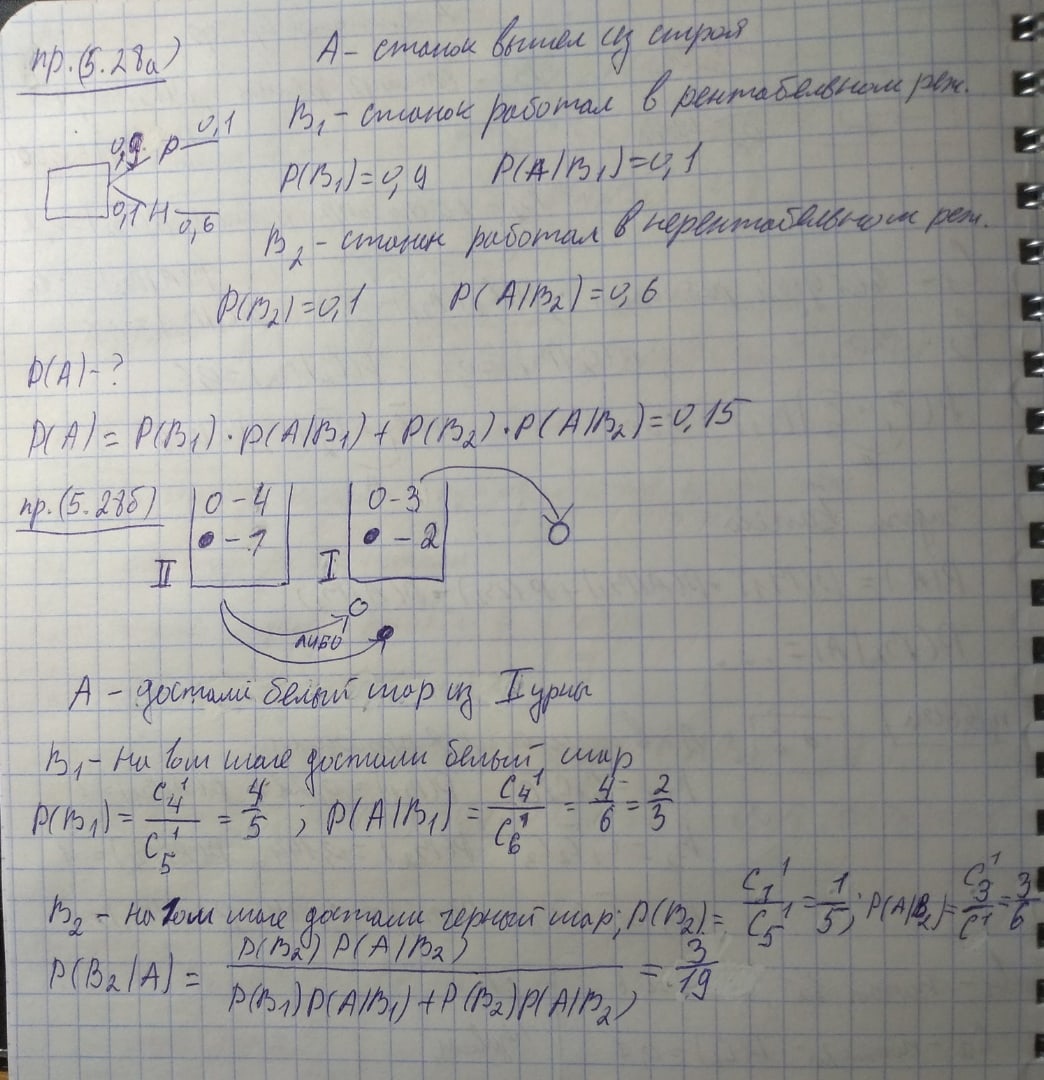 пр.(5.28а)
A – станок вышел из строя
B₁ – станок работал в рентабельном реж.
0,9 P 0,1
0,1 Н 0,6
P(B₁)=0,9 P(A|B₁)=0,1
B₂ – станок работал в нерентабельном реж.
P(B₂)=0,1 P(A|B₂)=0,6
P(A)-?
P(A) = P(B₁)·P(A|B₁)+P(B₂)·P(A|B₂)=0,15
пр.(5.28б)
O – 4
● – 1
II
O – 3
● – 2
I
либо
A – достали белый шар из I урны
B₁ – на 1ом шаге достали белый шар
P(B₁) = C₄¹/C₅¹ = 4/5 ; P(A|B₁) = C₄¹/C₆¹ = 4/6 = 2/3
B₂ – на 1ом шаге достали черный шар; P(B₂) = C₁¹/C₅¹ = 1/5; P(A|B₂) = C₃¹/C¹ = 3/6
P(B₂|A) = P(B₂) P(A|B₂)/P(B₁)P(A|B₁)+P(B₂)P(A|B₂) = 3/19